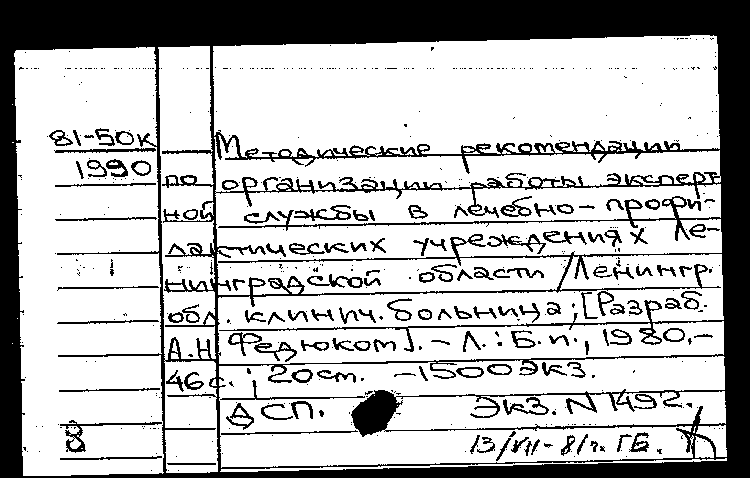 81-50к
1990
Методические рекомендации
по организации работы эксперт
ной службы в лечебно-профи-
лактических учреждениях Ле-
нинградской области /Ленингр.
обл. клинич. больница; [Разраб.
А.Н. Федюком]. - Л.: Б.и., 1980.-
46с.; 20см. -1500экз.
ДСП. Экз. N 1492.
8 13/VII-81г. ГБ.